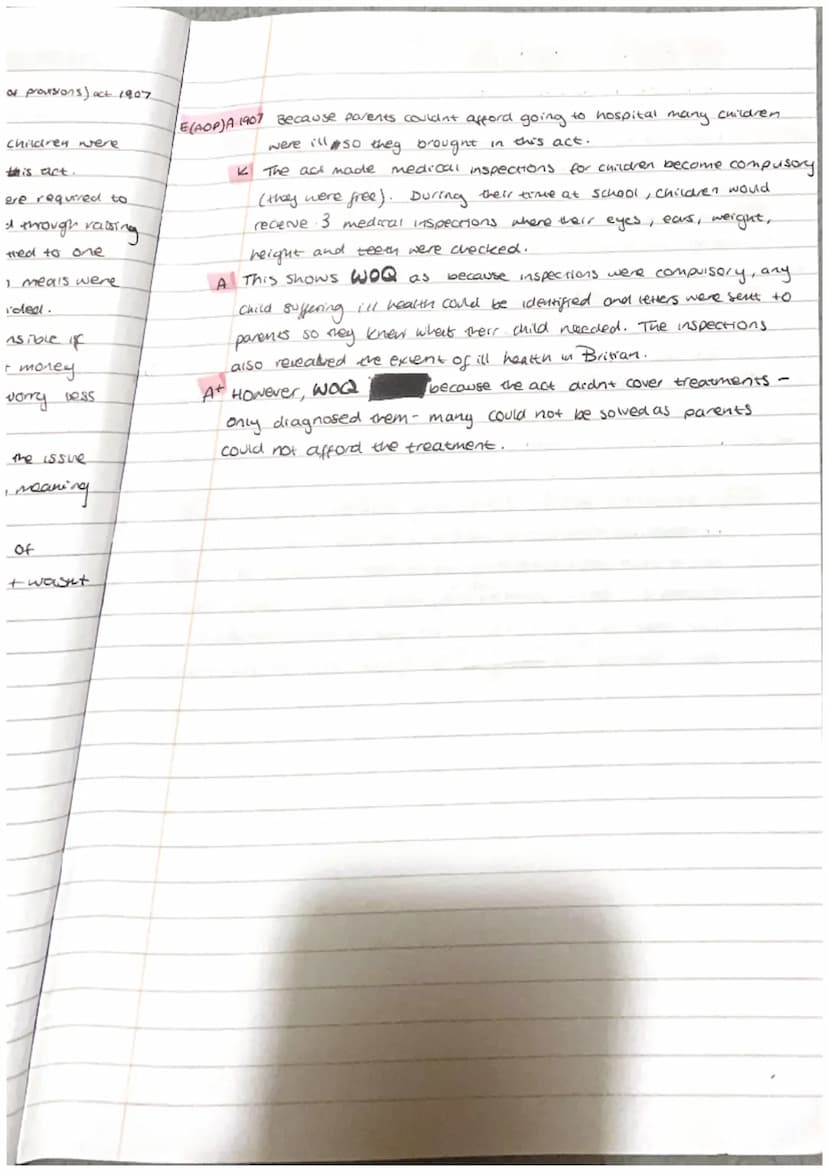 of provisions) act 1907
children were
this act.
ere required to
d through raising
tted to one
meals were
ided.
nsible if
r money
worry less
the issue
, meaning
of
t wasnt
E(AOP)A 1907 Because parents couldnt afford going to hospital many children
were ill so they brought in this act.
K The act made medical inspections for children become compusory
(they were free). During their time at school, children would
receive 3 medical inspections where their eyes, ears, weight,
height and teeth were checked.
A This shows WOQ as because inspections were compulsory, any
child suffering ill health could be identified and letters were sent to
parents so they knew what their child needed. The inspections
also revealed the extent of ill health in Britian.
A+ However, WOQ because the act didnt cover treatments -
only diagnosed them - many could not be solved as parents
could not afford the treatment.